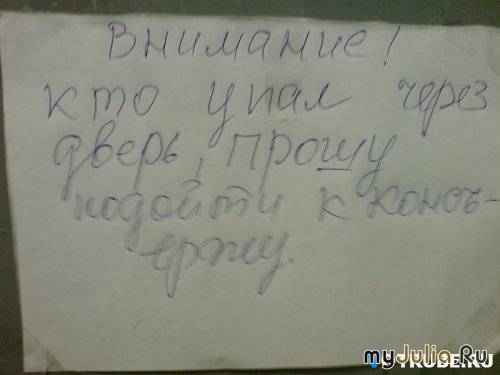 Внимание!
кто упал через
дверь, прошу
подойти к консъ-
ержу.
myJulia.Ru
YKUBE.RU